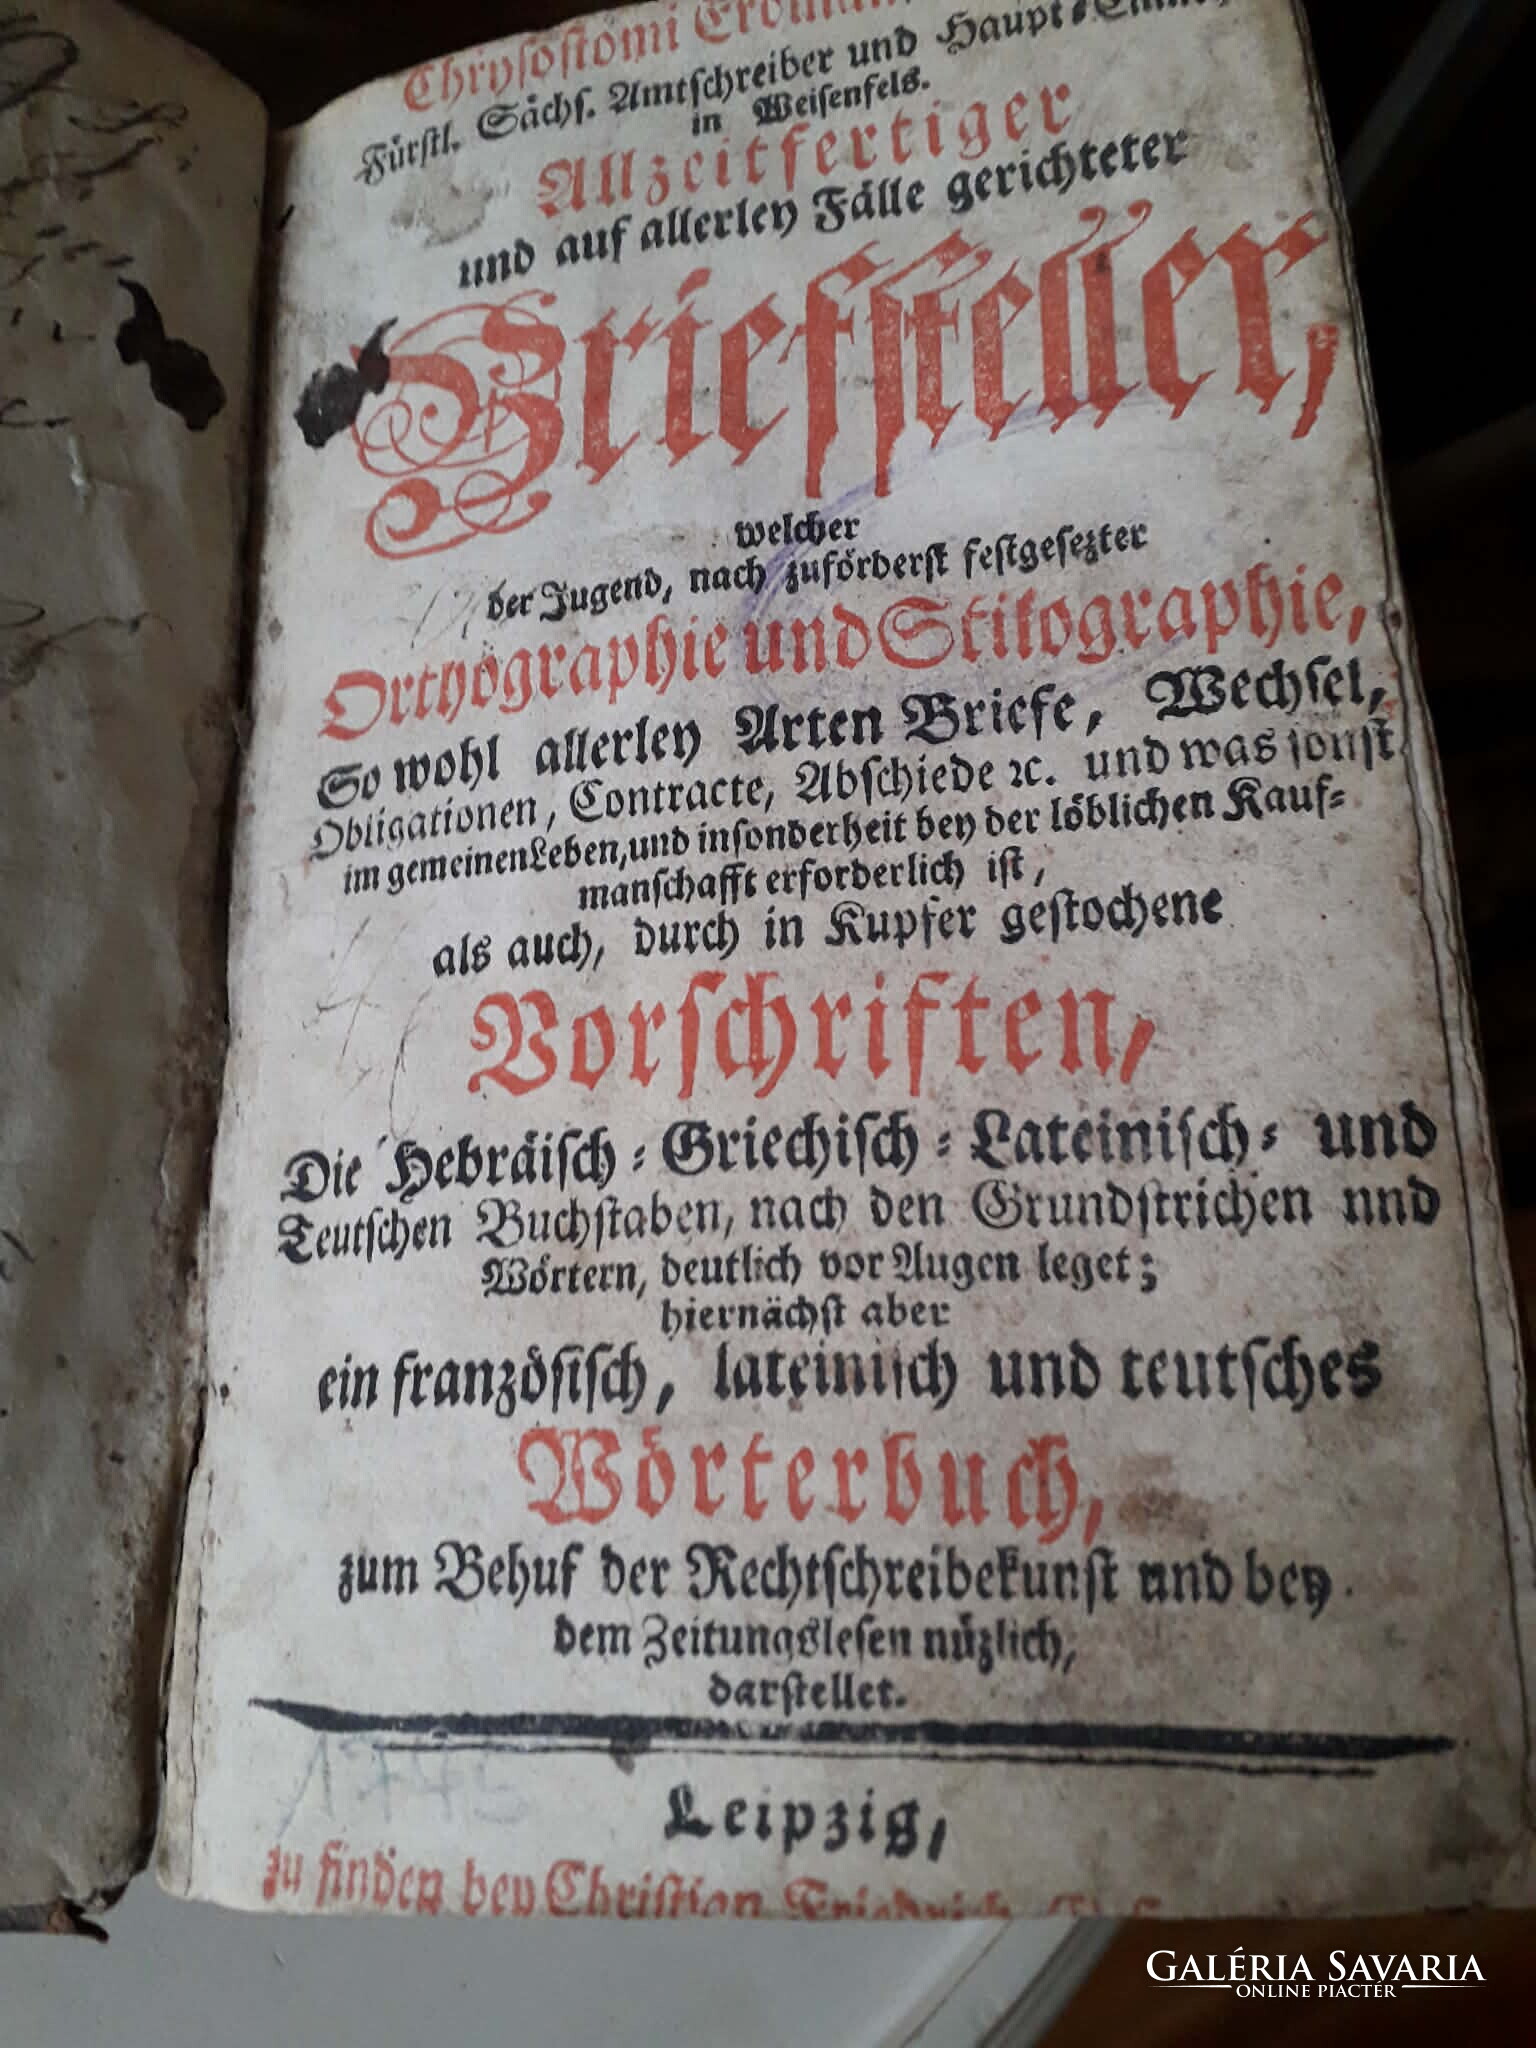 Chrysostomi
Fürstl. Sächs. Amtschreiber und Haupt-
in Weisenfels.
Allzeitfertiger
und auf allerley Fälle gerichteter
Briefsteller,
welcher
der Jugend, nach zuförderst festgesezter
Orthographie und Stikographie,
So wohl allerley Arten Briefe, Wechsel,
Obligationen, Contracte, Abschiede ꝛc. und was sonst
im gemeinen Leben, und insonderheit bey der löblichen Kauf-
manschafft erforderlich ist,
als auch, durch in Kupfer gestochene
Vorschriften,
Die Hebräisch-Griechisch-Lateinisch- und
Teutschen Buchstaben, nach den Grundstrichen nnd
Wörtern, deutlich vor Augen leget;
hiernächst aber
ein französisch, lateinisch und teutsches
Wörterbuch,
zum Behuf der Rechtschreibekunst und bey
dem Zeitungslesen nüzlich,
darstellet.
Leipzig,
zu finden bey Christian Friedrich
GALÉRIA SAVARIA
ONLINE PIACTÉR